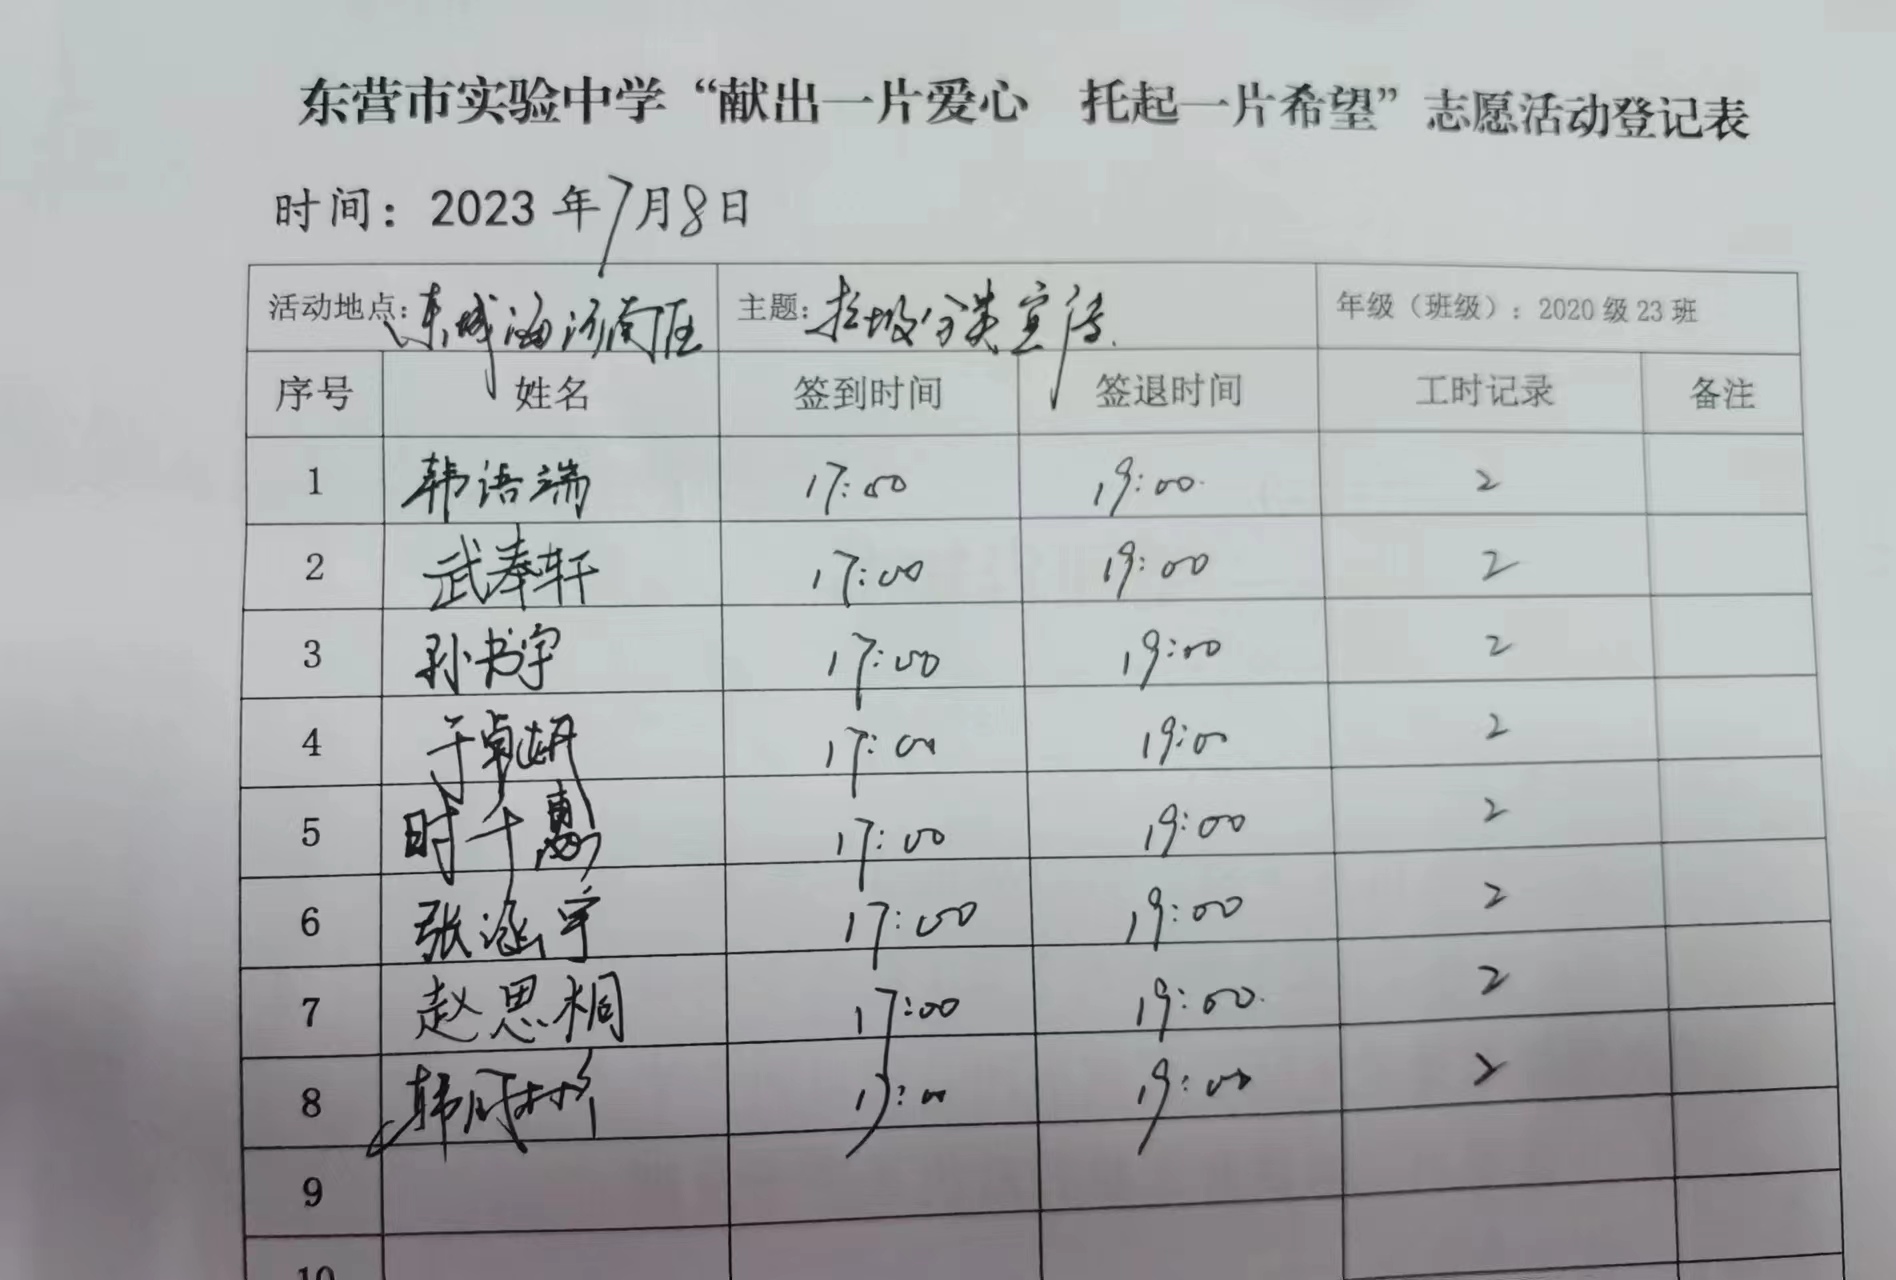 东营市实验中学“献出一片爱心 托起一片希望”志愿活动登记表
时间：2023年7月8日
活动地点：东城海河南区 主题：垃圾分类宣传 年级（班级）：2020级23班
序号 姓名 签到时间 签退时间 工时记录 备注
1 韩语端 17:00 19:00 2
2 武奉轩 17:00 19:00 2
3 孙书宇 17:00 19:00 2
4 于卓妍 17:00 19:00 2
5 时千惠 17:00 19:00 2
6 张涵宇 17:00 19:00 2
7 赵思桐 17:00 19:00 2
8 17:00 19:00 2
9
10